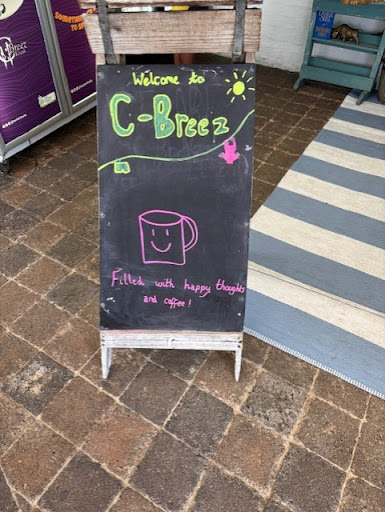 Welcome to
C-Breez
Filled with happy thoughts
and coffee!
Breez